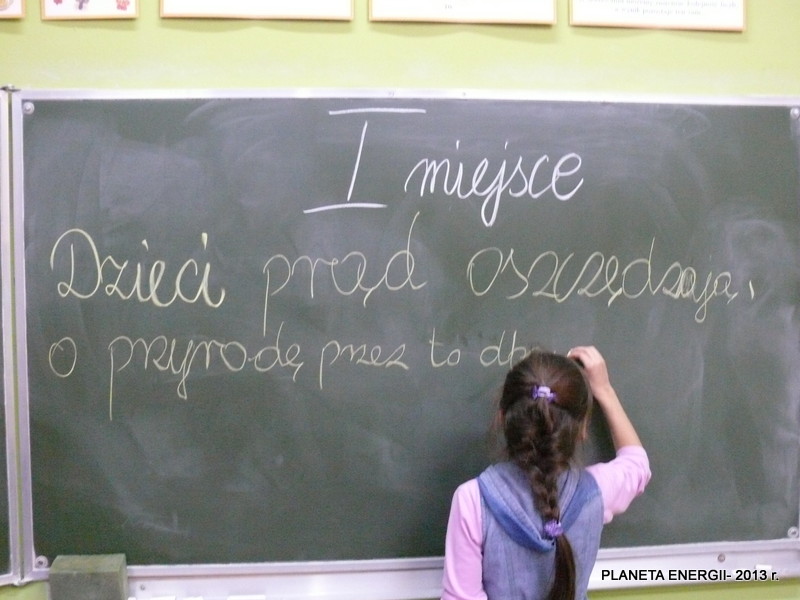 I miejsce
Dzieci prąd oszczędzają,
o przyrodę przez to
PLANETA ENERGII- 2013 r.